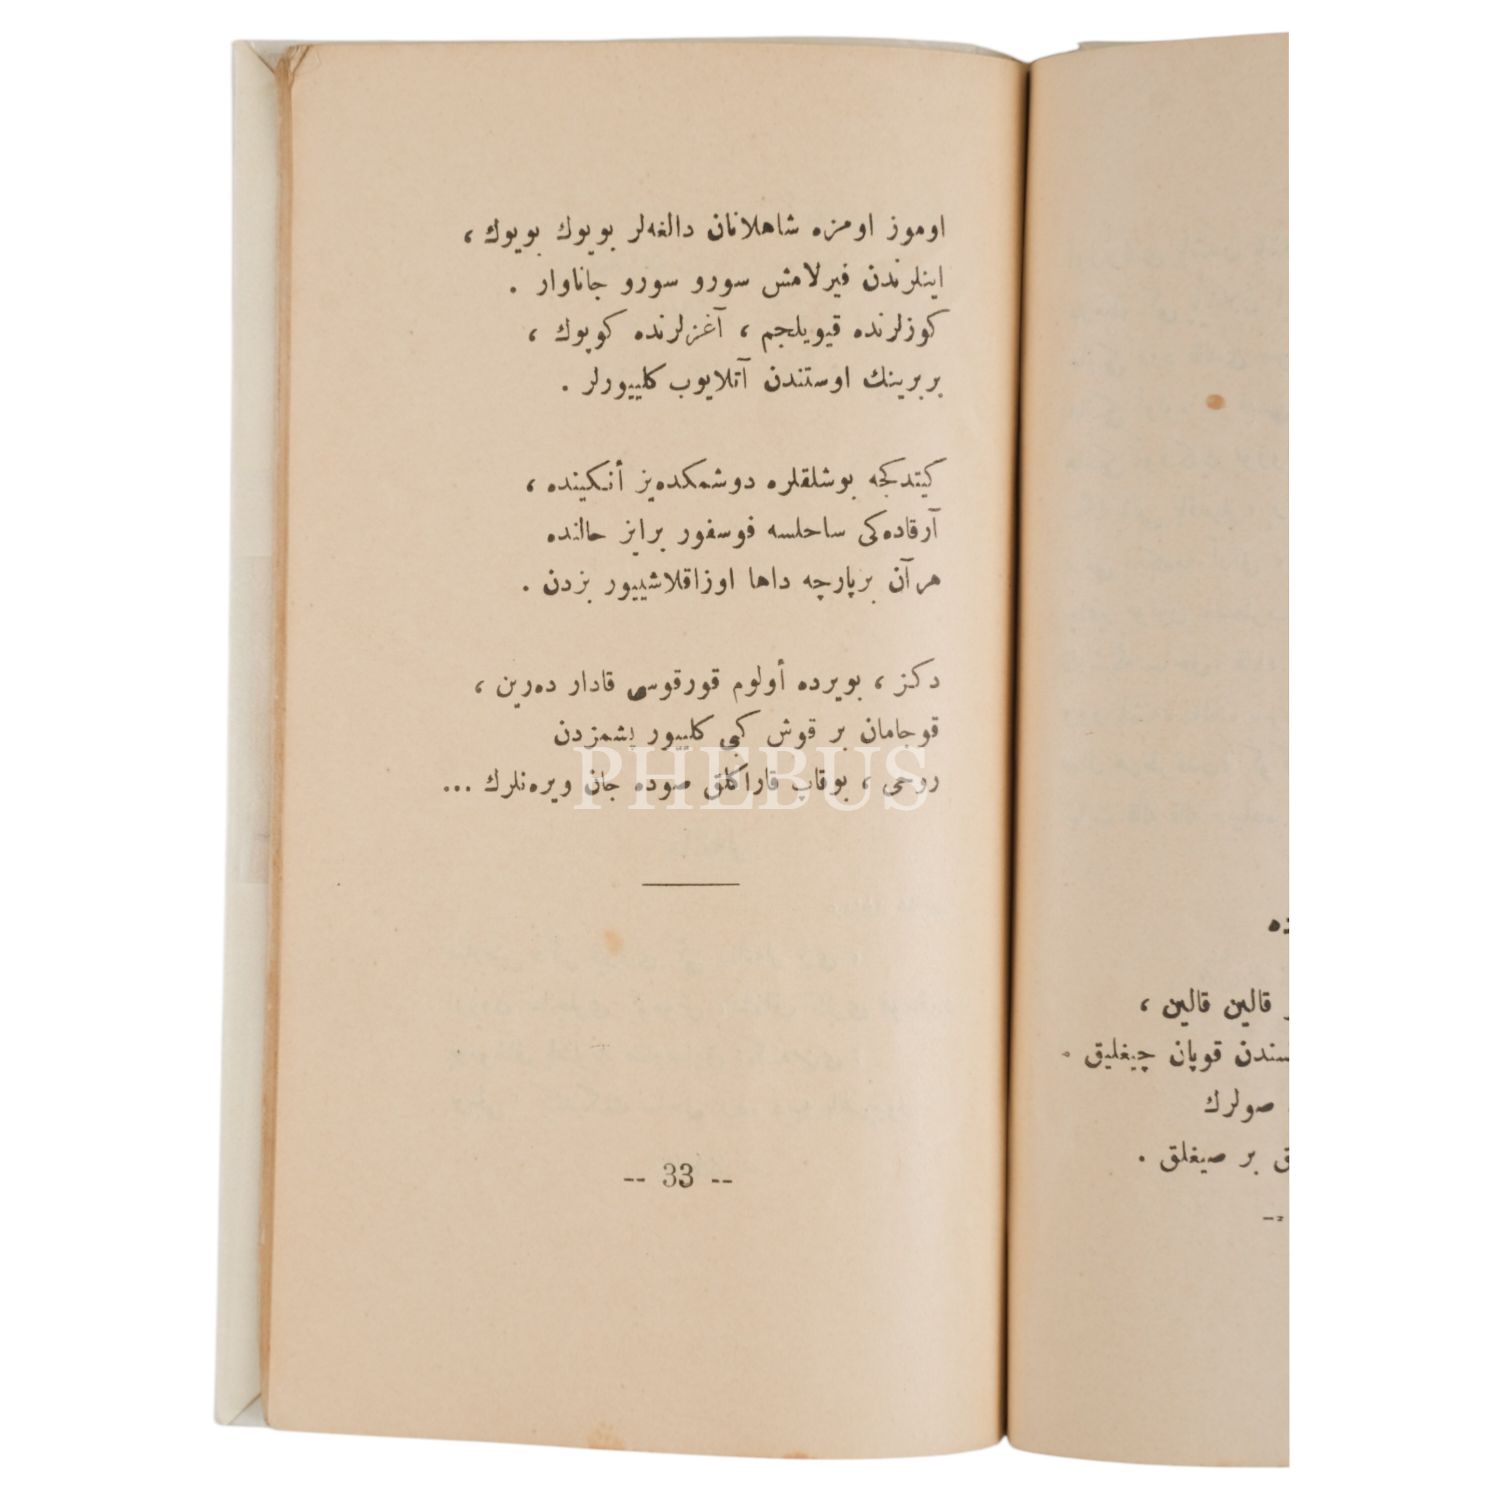 اوموز اومزه شاهلانان دالغه‌لر بويوك بويوك ،
اينلرندن فيرلامش سورو سورو جاناوار .
كوزلرنده قيويلجم ، آغزلرنده كوپوك ،
بربرينك اوستندن آتلايوب كلييورلر .
كيتدكجه بوشلقلره دوشمكده‌يز أنكينده ،
آرقاده‌كى ساحلسه فوسفور برايز حالنده
هر آن بر پارچه داها اوزاقلاشييور بزدن .
دكز ، بويرده أولوم قورقوسى قادار ده‌رين ،
قوجامان بر قوش كبى كلييور پشمزدن
روحى ، بوقاپ قاراكلق صوده جان ويره‌نلرك ...
PHEBUS
-- 33 --
قالين قالين ،
قوپان چيغليق .
صولرك
بر صيغلق .